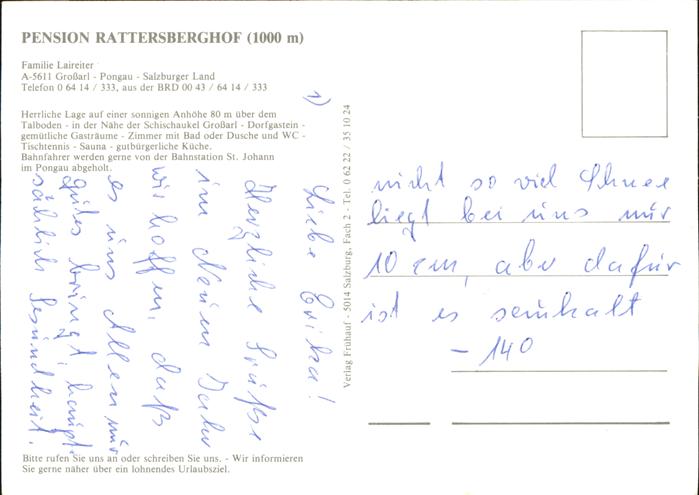 PENSION RATTERSBERGHOF (1000 m)
Familie Laireiter
A-5611 Großarl - Pongau - Salzburger Land
Telefon 0 64 14 / 333, aus der BRD 00 43 / 64 14 / 333
Herrliche Lage auf einer sonnigen Anhöhe 80 m über dem
Talboden - in der Nähe der Schischaukel Großarl - Dorfgastein -
gemütliche Gasträume - Zimmer mit Bad oder Dusche und WC -
Tischtennis - Sauna - gutbürgerliche Küche.
Bahnfahrer werden gerne von der Bahnstation St. Johann
im Pongau abgeholt.
1)
Liebe Erika!
Herzliche Grüße
im Neuen Jahr
wir hoffen, daß
es uns Allen nur
gutes bringt, haupt-
sächlich Gesundheit.
Bitte rufen Sie uns an oder schreiben Sie uns. - Wir informieren
Sie gerne näher über ein lohnendes Urlaubsziel.
Verlag Frühauf - 5014 Salzburg, Fach 2 - Tel. 0 62 22 / 35 10 24
nicht so viel Schnee
liegt bei uns nur
10 cm, aber dafür
ist es seuhalt
- 140